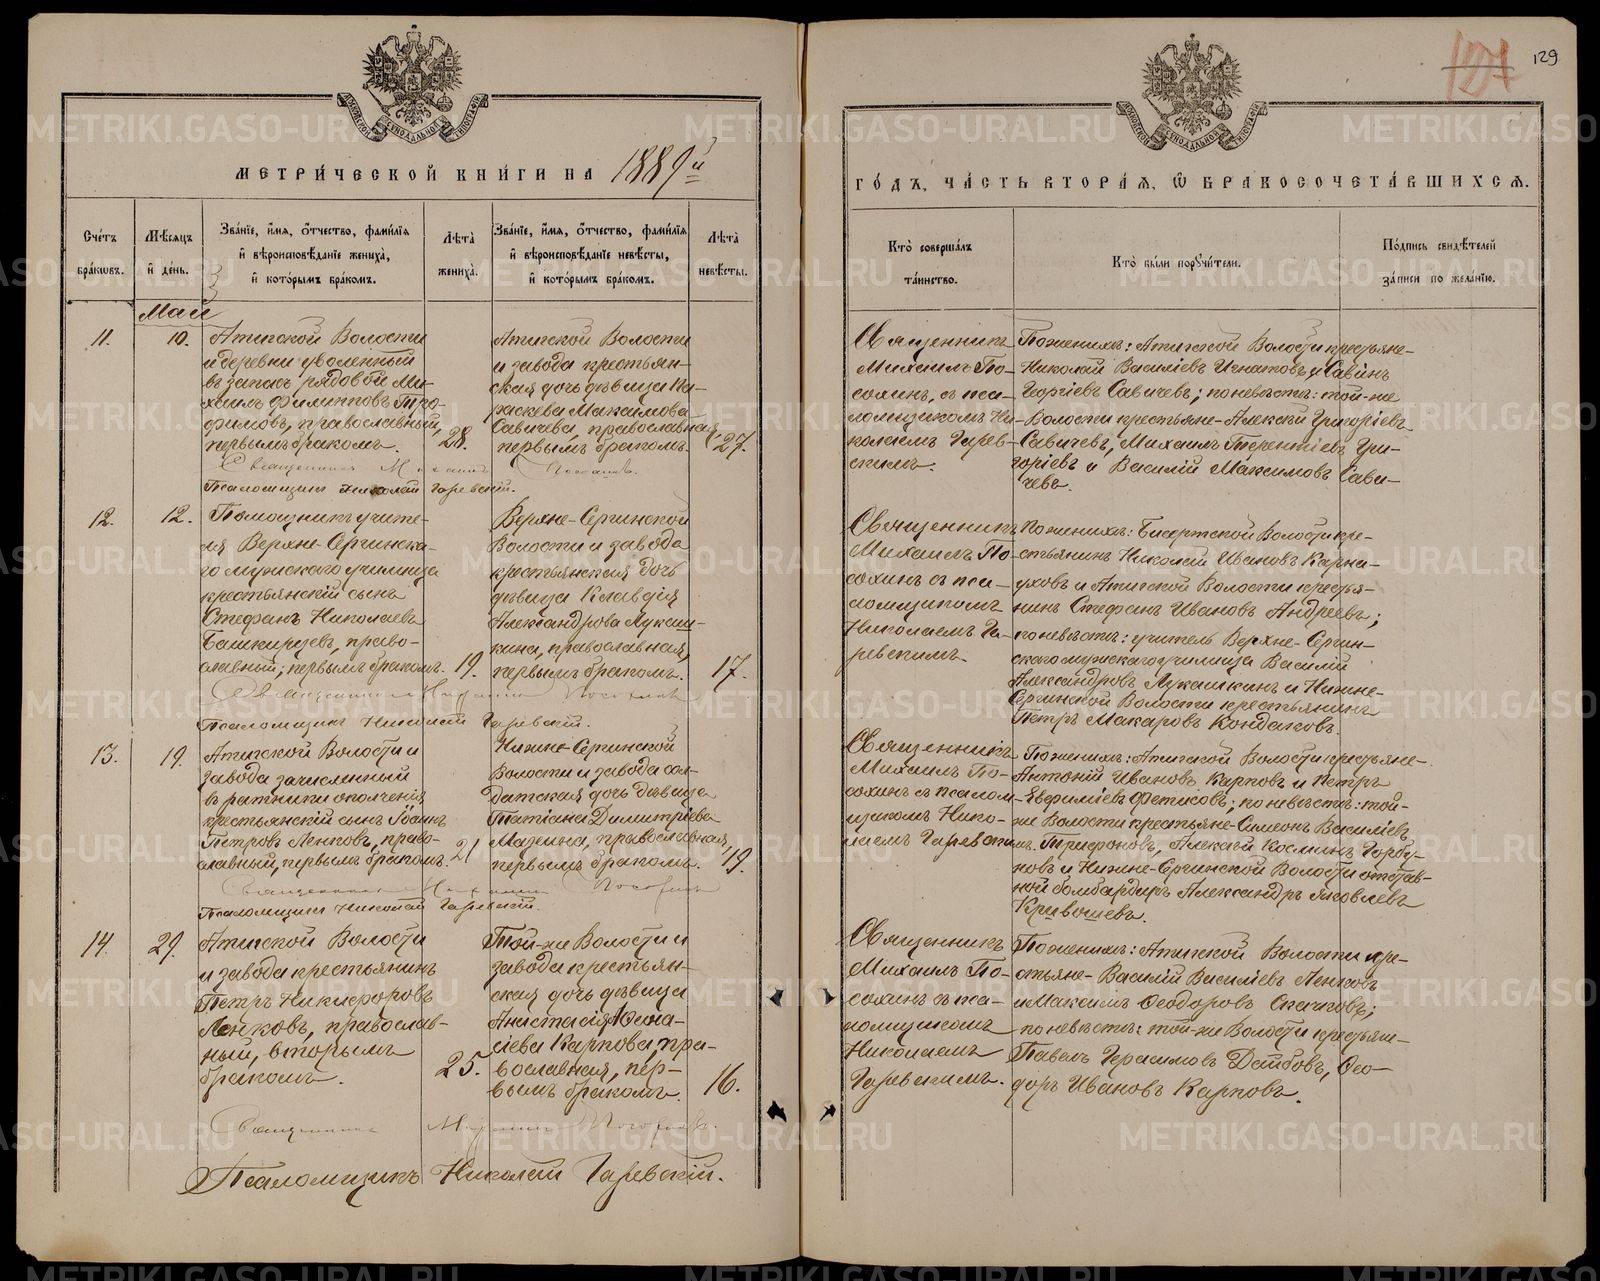 129
МЕТРИ́ЧЕСКОЙ КНИ́ГИ НА 1889й
ГО́ДЪ, ЧА́СТЬ ВТОРА́Я, Ѽ БРАКОСОЧЕТА́ВШИХСѦ.
Сче́тъ бра́ковъ.
Мѣ́сѧцъ и҆ де́нь.
Зва́нїе, и҆́мя, ѻ҆́тчество, фами́лїя
и҆ вѣроисповѣ́данїе жениха̀,
и҆ кото́рымъ бра́комъ.
Лѣ́та̀ жениха̀.
Зва́нїе, и҆́мя, ѻ҆́тчество, фами́лїя
и҆ вѣроисповѣ́данїе невѣ́сты,
и҆ кото́рымъ бра́комъ.
Лѣ́та̀ невѣ́сты.
Кто̀ соверша́лъ
та́инство.
Кто̀ бы́ли порꙋчи́тели.
По́дпись свидѣ́телей
за́писи по жела́нїю.
Май
11.
10.
Атигской Волости
и деревни уволенный
въ запасъ рядовой Ми-
хаилъ Филипповъ Тро-
фимовъ, православный,
первымъ бракомъ.
28.
Атигской Волости
и завода крестьян-
ская дочь дѣвица Па-
раскева Максимова
Савичева, православная
первымъ бракомъ.
27.
Священникъ
Михаилъ По-
сохинъ, съ пса-
ломщикомъ Ни-
колаемъ Гарев-
скимъ.
По женихѣ: Атигской Волости крестьяне-
Николай Василіевъ Игнатовъ и Савинъ
Георгіевъ Савичевъ; по невѣстѣ: той-же
Волости крестьяне-Алексѣй Григоріевъ
Савичевъ, Михаилъ Терентіевъ Гри-
горіевъ и Василій Максимовъ Сави-
чевъ.
Священникъ Михаилъ Посохинъ
Псаломщикъ Николай Гаревскій.
12.
12.
Помощникъ учите-
ля Верхне-Сергинска-
го мужскаго училища
крестьянскій сынъ
Стефанъ Николаевъ
Башкирцевъ, право-
славный; первымъ бракомъ.
19.
Верхне-Сергинской
Волости и завода
крестьянская дочь
дѣвица Клавдія
Александрова Лукаш-
кина, православная,
первымъ бракомъ.
17.
Священникъ
Михаилъ По-
сохинъ съ пса-
ломщикомъ
Николаемъ Га-
ревскимъ.
По женихѣ: Бисертской Волости кре-
стьянинъ Николай Ивановъ Карна-
уховъ и Атигской Волости крестья-
нинъ Стефанъ Ивановъ Андреевъ;
по невѣстѣ: учитель Верхне-Сергин-
скаго мужскаго училища Василій
Александровъ Лукашкинъ и Нижне-
Сергинской Волости крестьянинъ
Петръ Макаровъ Кондаковъ.
Священникъ Михаилъ Посохинъ
Псаломщикъ Николай Гаревскій.
13.
19.
Атигской Волости и
завода зачисленный
въ ратники ополченія
крестьянскій сынъ Іоаннъ
Петровъ Ленковъ, право-
славный, первымъ бракомъ.
21
Нижне-Сергинской
Волости и завода сол-
датская дочь дѣвица
Татіана Димитріева
Мазеина, православная,
первымъ бракомъ.
19.
Священникъ
Михаилъ По-
сохинъ съ псалом-
щикомъ Нико-
лаемъ Гаревскимъ.
По женихѣ: Атигской Волости крестьяне-
Антоній Ивановъ Карповъ и Петръ
Евфиміевъ Фетисовъ; по невѣстѣ: той-
же Волости крестьяне-Симеонъ Василіевъ
Трифоновъ, Алексѣй Косминъ Горбу-
новъ и Нижне-Сергинской Волости отстав-
ной бомбардиръ Александръ Яковлевъ
Кривошеевъ.
Священникъ Михаилъ Посохинъ
Псаломщикъ Николай Гаревскій.
14.
29.
Атигской Волости
и завода крестьянинъ
Петръ Никифоровъ
Ленковъ, православ-
ный, вторымъ
бракомъ.
25.
Той-же Волости и
завода крестьян-
ская дочь дѣвица
Анастасія
Карпова, пра-
вославная, пер-
вымъ бракомъ.
16.
Священникъ
Михаилъ По-
сохинъ съ пса-
ломщикомъ
Николаемъ
Гаревскимъ.
По женихѣ: Атигской Волости кре-
стьяне-Василій Василіевъ Ленковъ
и Максимъ Ѳеодоровъ Скачковъ;
по невѣстѣ: той-же Волости крестьян-
Павелъ Герасимовъ Дейбовъ, Ѳео-
доръ Ивановъ Карповъ.
Священникъ Михаилъ Посохинъ.
Псаломщикъ Николай Гаревскій.
METRIKI.GASO-URAL.RU